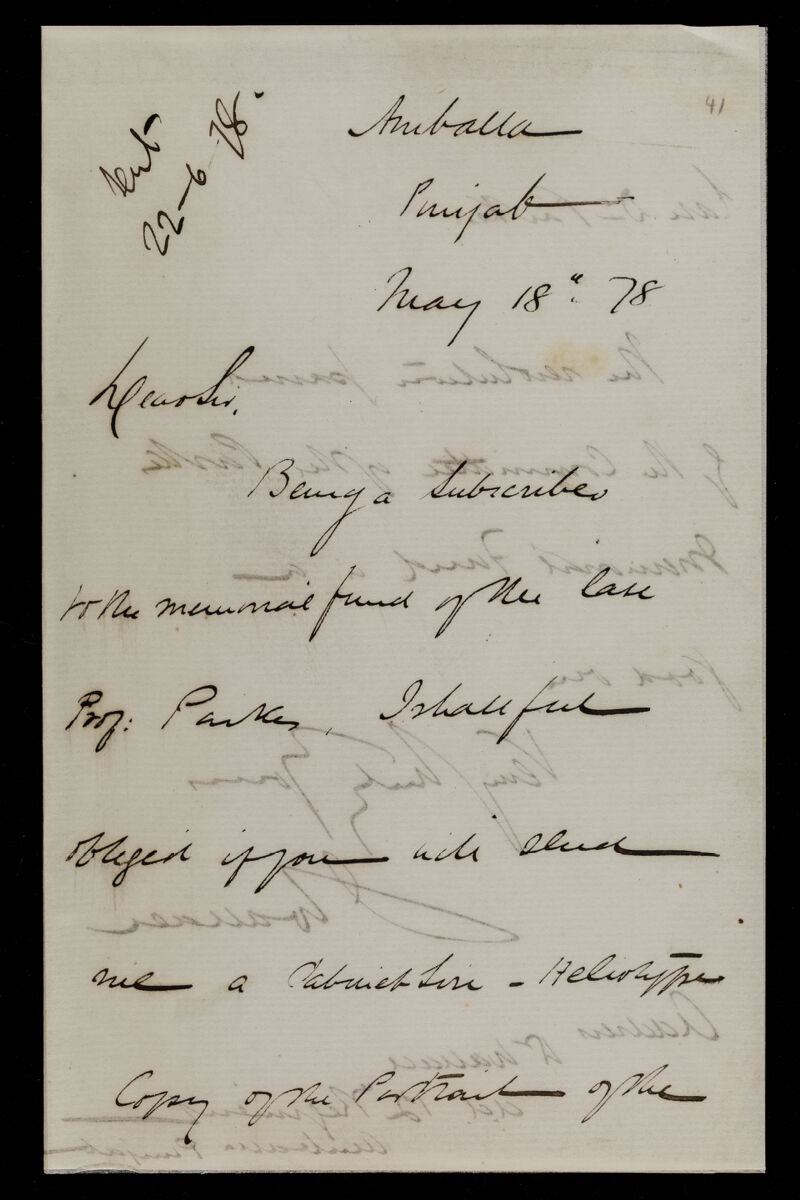 41
Sent
22-6-78.
Umballa
Punjab
May 18". 78
Dear Sir,
Being a Subscriber
to the memorial fund of the late
Prof: Parkes, I shall feel
obliged if you will send
me a Cabinet Size - Heliotype
Copy of the Portrait of the